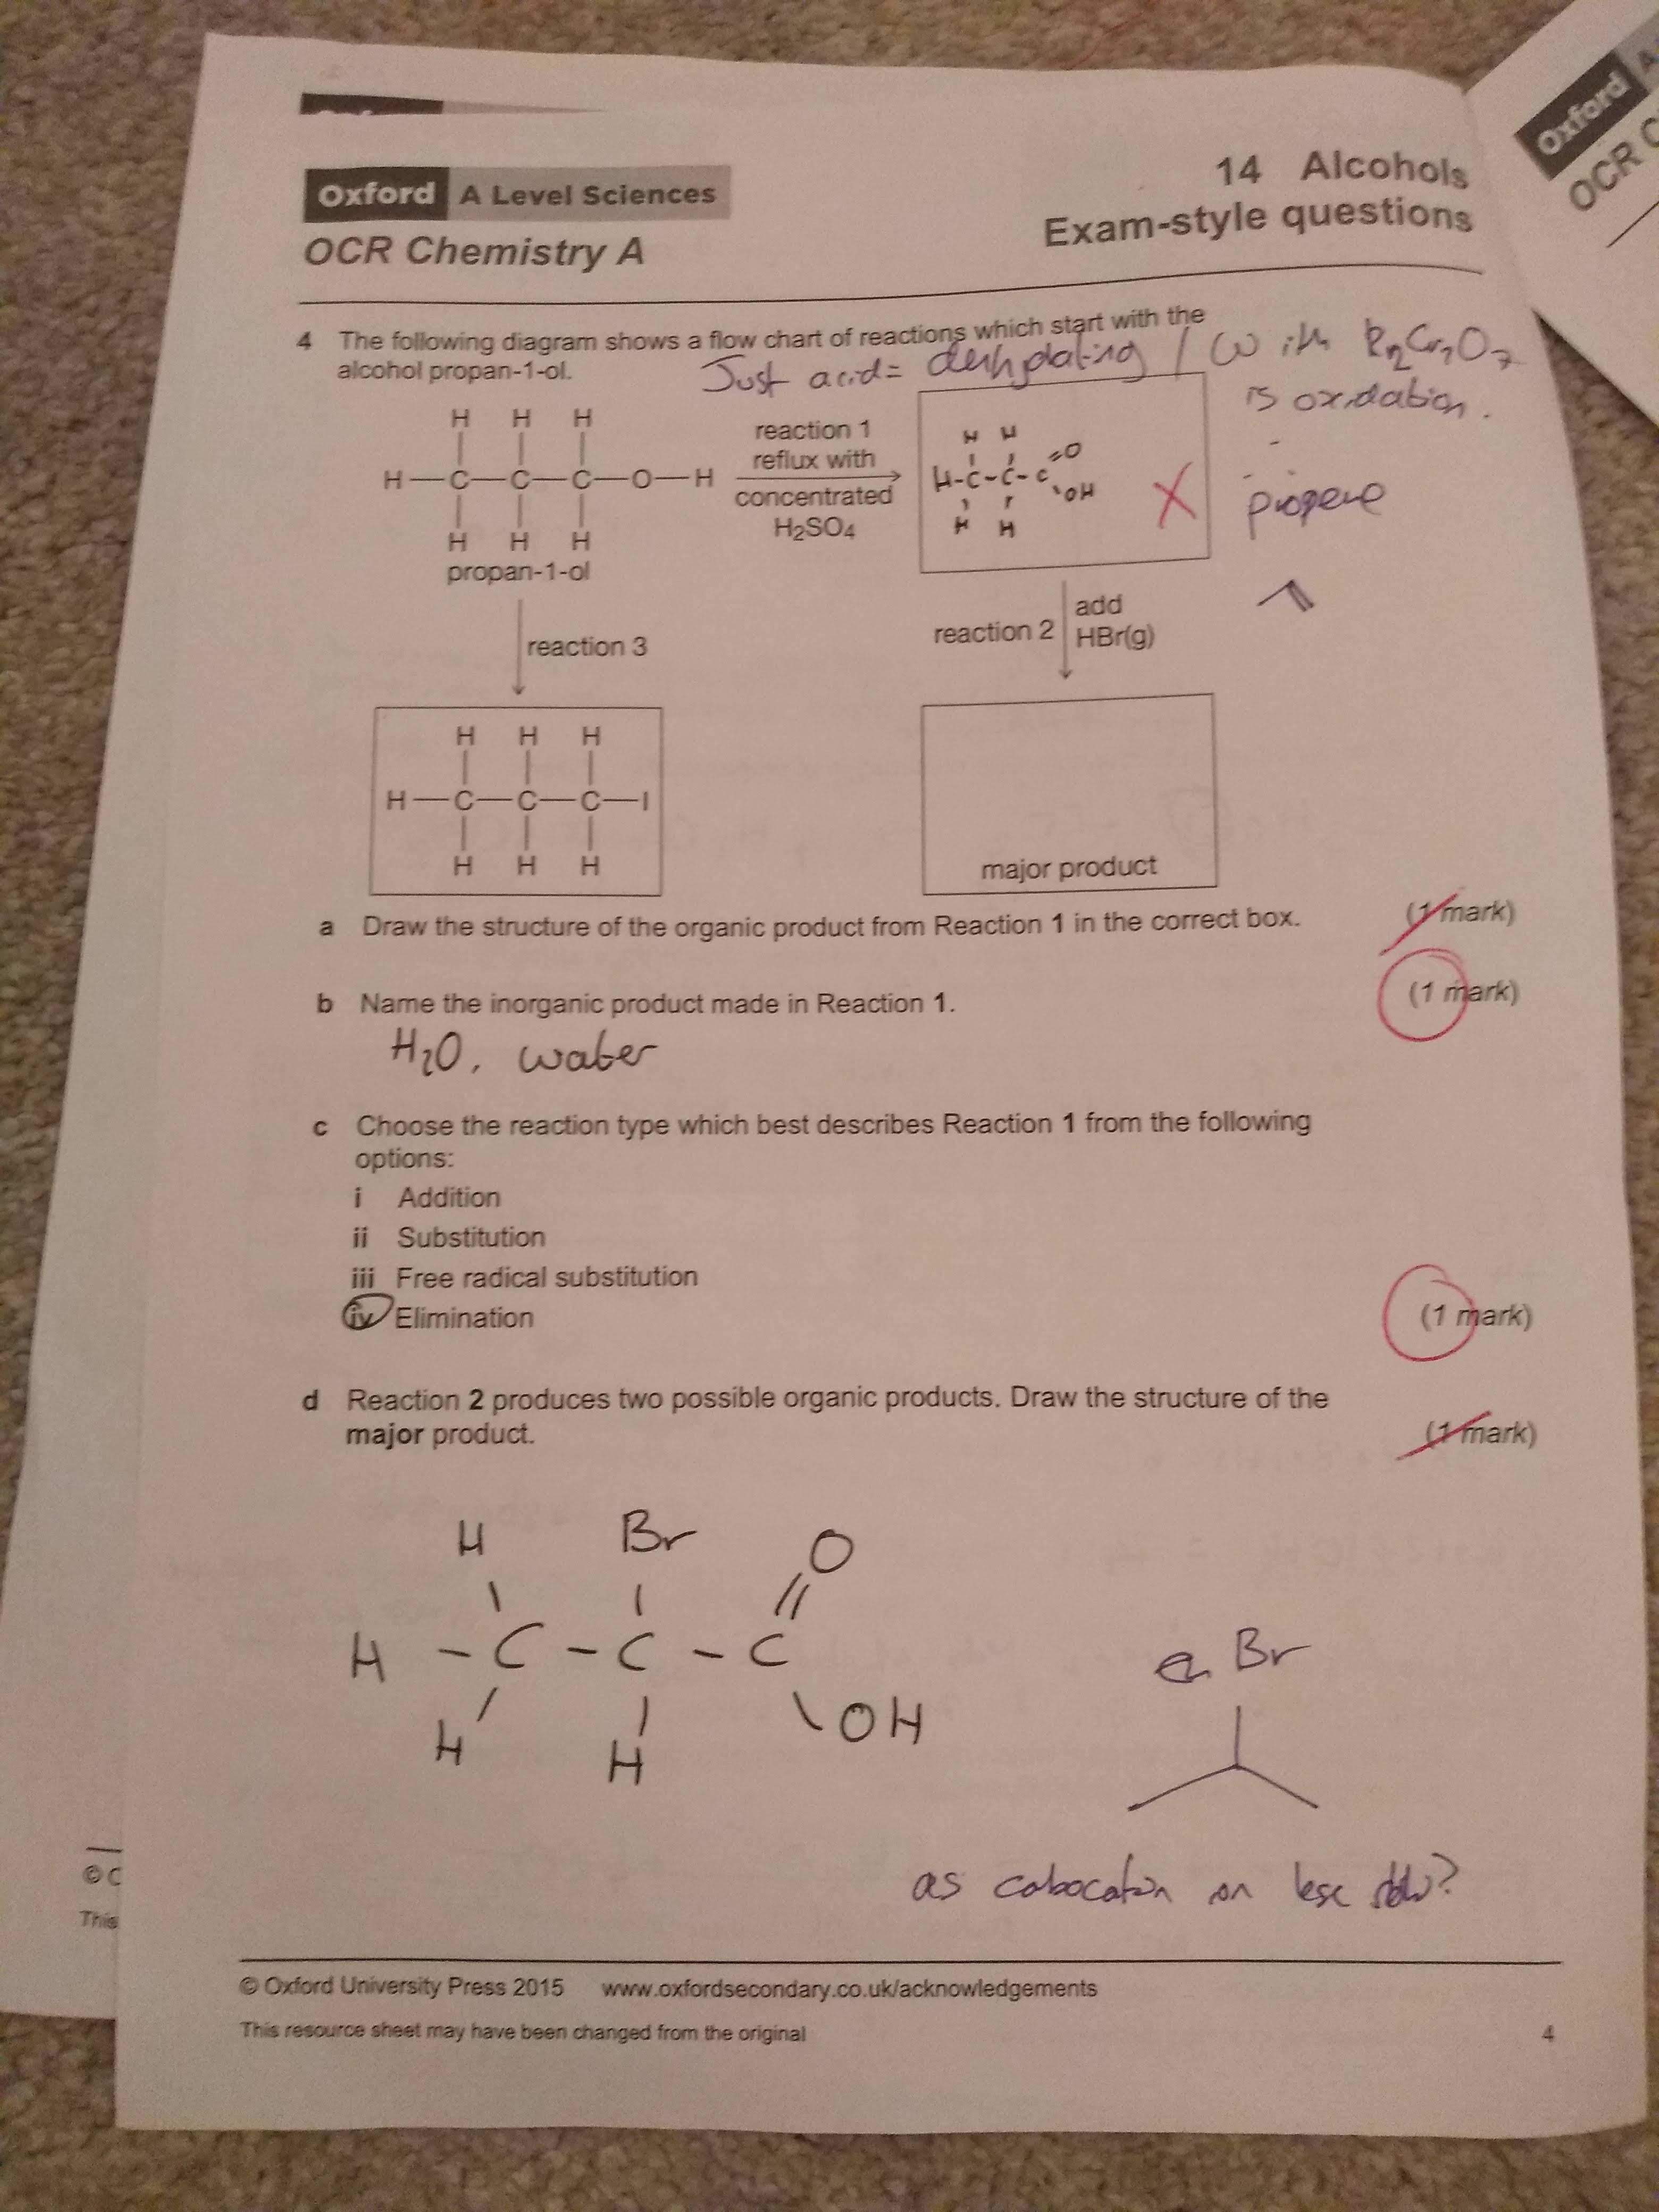 Oxford A Level Sciences
OCR Chemistry A
14 Alcohols
Exam-style questions
Oxford
OCR C
4 The following diagram shows a flow chart of reactions which start with the
alcohol propan-1-ol.
Just acid = dehydrating / with K2Cr2O7
is oxidation.
H H H
H—C—C—C—O—H
H H H
propan-1-ol
reaction 1
reflux with
concentrated
H2SO4
H H
H-C-C-C
=O
OH
H H
X
propene
reaction 3
reaction 2
add
HBr(g)
H H H
H—C—C—C—I
H H H
major product
a Draw the structure of the organic product from Reaction 1 in the correct box.
(1 mark)
b Name the inorganic product made in Reaction 1.
(1 mark)
H2O, water
c Choose the reaction type which best describes Reaction 1 from the following
options:
i Addition
ii Substitution
iii Free radical substitution
iv Elimination
(1 mark)
d Reaction 2 produces two possible organic products. Draw the structure of the
major product.
(1 mark)
H Br O
H - C - C - C
H H OH
Br
as on
© C
This
© Oxford University Press 2015 www.oxfordsecondary.co.uk/acknowledgements
This resource sheet may have been changed from the original
4